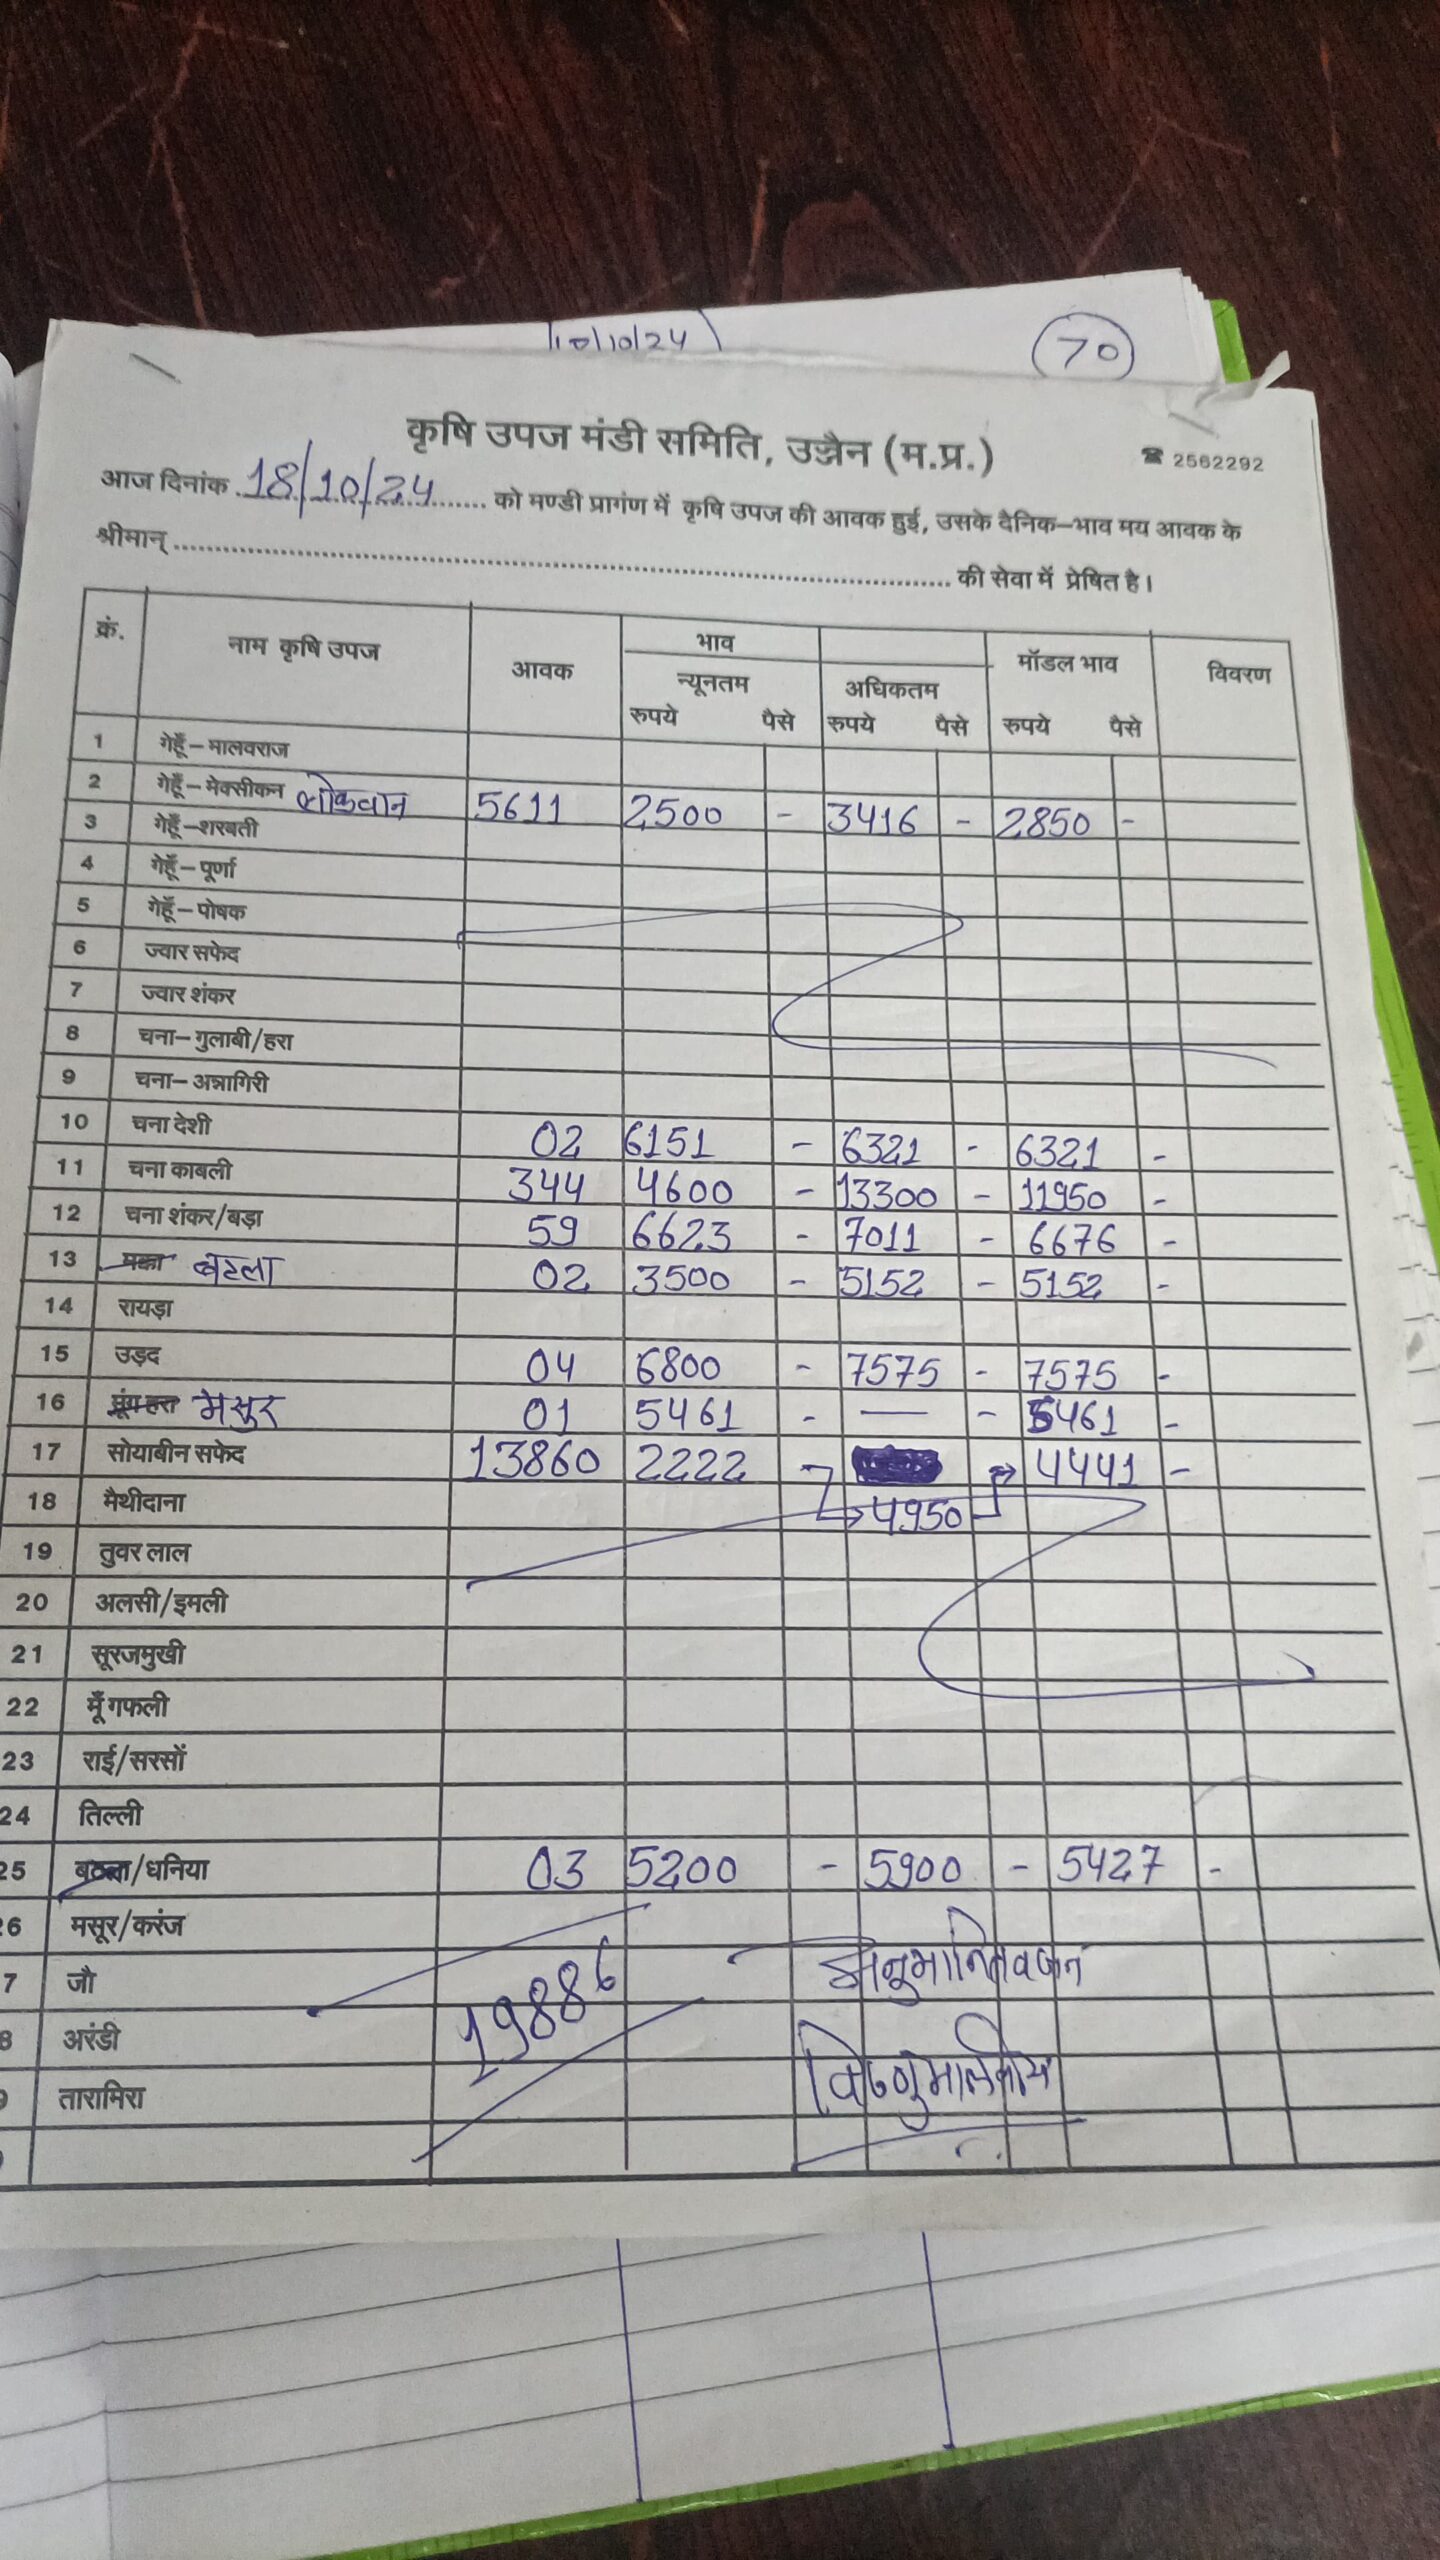 18/10/24
70
कृषि उपज मंडी समिति, उज्जैन (म.प्र.)
☎ 2562292
आज दिनांक 18/10/24 को मण्डी प्रागंण में कृषि उपज की आवक हुई, उसके दैनिक–भाव मय आवक के
श्रीमान् की सेवा में प्रेषित है।
क्रं. नाम कृषि उपज आवक भाव मॉडल भाव विवरण
न्यूनतम अधिकतम
रुपये पैसे रुपये पैसे रुपये पैसे
1 गेहूँ–मालवराज
2 गेहूँ–मेक्सीकन लोकवान 5611 2500 - 3416 - 2850 -
3 गेहूँ–शरबती
4 गेहूँ–पूर्णा
5 गेहूँ–पोषक
6 ज्वार सफेद
7 ज्वार शंकर
8 चना–गुलाबी/हरा
9 चना–अन्नागिरी
10 चना देशी 02 6151 - 6321 - 6321 -
11 चना काबली 344 4600 - 13300 - 11950 -
12 चना शंकर/बड़ा 59 6623 - 7011 - 6676 -
13 मक्का बटला 02 3500 - 5152 - 5152 -
14 रायड़ा
15 उड़द 04 6800 - 7575 - 7575 -
16 मूंग हरा मसुर 01 5461 - — - 5461 -
17 सोयाबीन सफेद 13860 2222 - 4441 -
18 मैथीदाना 4950
19 तुवर लाल
20 अलसी/इमली
21 सूरजमुखी
22 मूँगफली
23 राई/सरसों
24 तिल्ली
25 बटला/धनिया 03 5200 - 5900 - 5427 -
26 मसूर/करंज
7 जौ 19886 अनुमानित वजन
8 अरंडी
9 तारामिरा विष्णु मालवीय